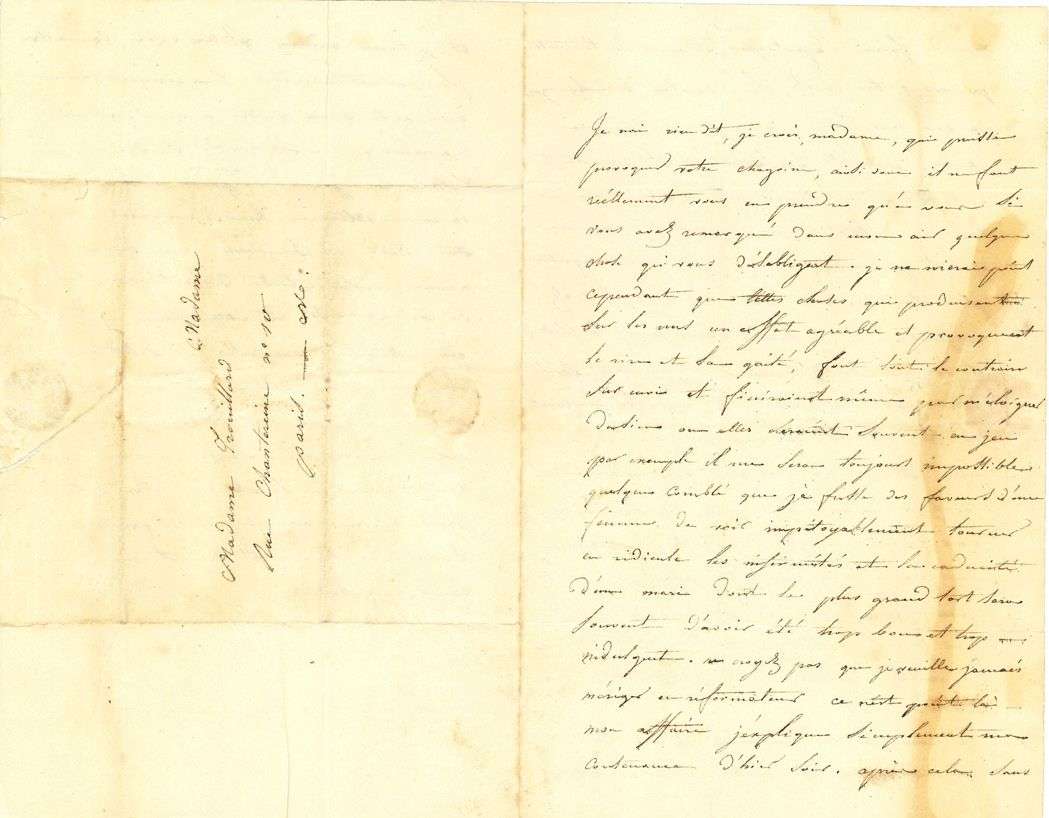 à Madame
Madame Trouillard
Rue Chantereine no 10
paris.
Je n'ai rien dit, je crois, madame, qui puisse
provoquer votre chagrin, ainsi donc il ne faut
réellement vous en prendre qu'à vous si
vous avez remarqué dans mon air quelque
chose qui vous désobligent. je ne nierais point
cependant que telles choses qui produisent
sur les uns un effet agréable et provoquent
le rire et la gaité, font tout le contraire
sur moi et finiraient même par m'éloigner
des lieux ou elles seraient souvent en jeu
par exemple il me sera toujours impossible
quelque comblé que je fusse des faveurs d'une
femme de voir impitoyablement tourner
en ridicule les infirmités et la caducité
d'un mari dont le plus grand tort sera
souvent d'avoir été trop bon et trop
indulgent. ne croyez pas que je veuille jamais
m'ériger en réformateur ce n'est point là
mon affaire j'explique simplement ma
contenance d'hier soir. après cela sans